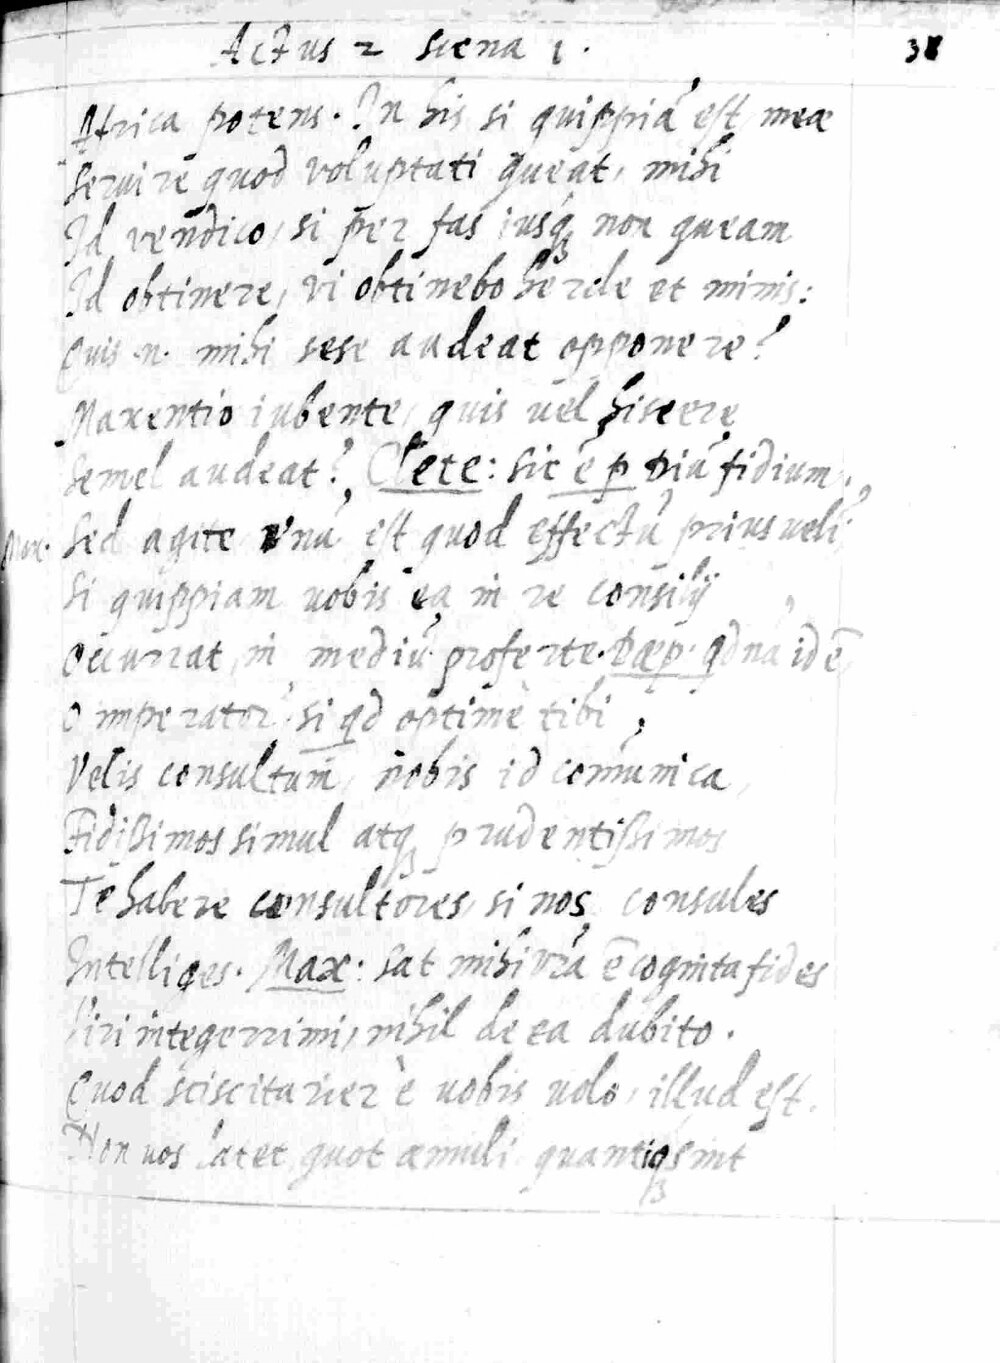 Actus 2 scena 1.
38
Africa potens. In his si quippiã est meæ
Seruire quod voluptati queat, mihi
Id vendico, si per fas iusq; non queam
Id obtinere, vi obtinebo hercle et minis:
Quis .n. mihi sese audeat opponere?
Maxentio iubente, quis uel hiscere
Semel audeat? Clete: sic ẽ p Diũ fidium.
Max. Sed agite vnũ est quod effectũ prius uelĩ
Si quippiam uobis ea in re consilij
Occurrat, in mediũ proferte. Dæp. qd nã id ẽ,
O imperator? si qd optimè tibi
Velis consultum, nobis id comũnica,
Fidißimos simul atq; prudentißimos
Te habere consultores, si nos consules
Intelliges. Max: sat mihi vrã ẽ cognita fides
Viri integerrimi, nihil de ea dubito.
Quod sciscitarier è uobis uolo, illud est.
Non uos latet quot æmuli quantiq; sint